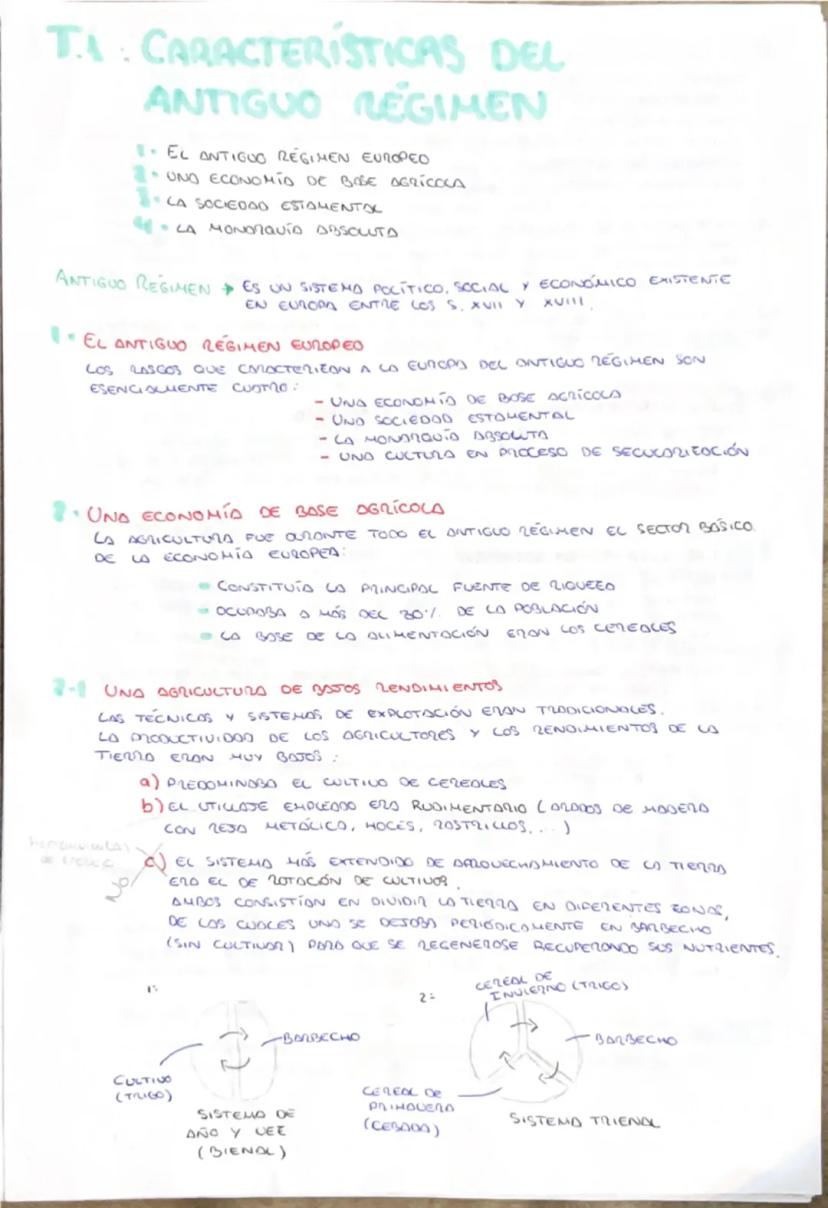 T.1: CARACTERÍSTICAS DEL
ANTIGUO RÉGIMEN
1. EL ANTIGUO RÉGIMEN EUROPEO
2. UNA ECONOMÍA DE BASE AGRÍCOLA
3. LA SOCIEDAD ESTAMENTAL
4. LA MONARQUÍA ABSOLUTA
ANTIGUO RÉGIMEN → ES UN SISTEMA POLÍTICO, SOCIAL Y ECONÓMICO EXISTENTE
EN EUROPA ENTRE LOS S. XVII Y XVIII.
1. EL ANTIGUO RÉGIMEN EUROPEO
LOS RASGOS QUE CARACTERIZAN A LA EUROPA DEL ANTIGUO RÉGIMEN SON
ESENCIALMENTE CUATRO:
- UNA ECONOMÍA DE BASE AGRÍCOLA
- UNA SOCIEDAD ESTAMENTAL
- LA MONARQUÍA ABSOLUTA
- UNA CULTURA EN PROCESO DE SECULARIZACIÓN
2. UNA ECONOMÍA DE BASE AGRÍCOLA
LA AGRICULTURA FUE DURANTE TODO EL ANTIGUO RÉGIMEN EL SECTOR BÁSICO
DE LA ECONOMÍA EUROPEA:
- CONSTITUÍA LA PRINCIPAL FUENTE DE RIQUEZA
- OCUPABA A MÁS DEL 80% DE LA POBLACIÓN
- LA BASE DE LA ALIMENTACIÓN ERAN LOS CEREALES
2-1 UNA AGRICULTURA DE BAJOS RENDIMIENTOS
LAS TÉCNICAS Y SISTEMAS DE EXPLOTACIÓN ERAN TRADICIONALES.
LA PRODUCTIVIDAD DE LOS AGRICULTORES Y LOS RENDIMIENTOS DE LA
TIERRA ERAN MUY BAJOS:
a) PREDOMINABA EL CULTIVO DE CEREALES
b) EL UTILLAJE EMPLEADO ERA RUDIMENTARIO (ARADOS DE MADERA
CON REJA METÁLICA, HOCES, RASTRILLOS, ...)
c) EL SISTEMA MÁS EXTENDIDO DE APROVECHAMIENTO DE LA TIERRA
ERA EL DE ROTACIÓN DE CULTIVOS.
NO
AMBOS CONSISTÍAN EN DIVIDIR LA TIERRA EN DIFERENTES ZONAS,
DE LAS CUALES UNA SE DEJABA PERIÓDICAMENTE EN BARBECHO
(SIN CULTIVAR) PARA QUE SE REGENERASE RECUPERANDO SUS NUTRIENTES.
1:
BARBECHO
CULTIVO
(TRIGO)
SISTEMA DE
AÑO Y VEZ
(BIENAL)
2:
CEREAL DE
INVIERNO (TRIGO)
BARBECHO
CEREAL DE
PRIMAVERA
(CEBADA)
SISTEMA TRIENAL